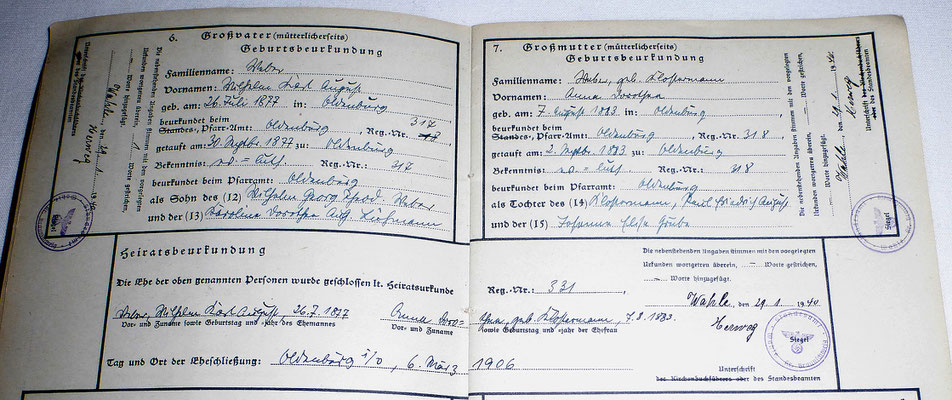 6. Großvater (mütterlicherseits)
Geburtsbeurkundung
Familienname: Weber
Vornamen: Wilhelm Karl August
geb. am: 26. Juli 1877 in: Oldenburg
beurkundet beim 317
Standes, Pfarr-Amt: Oldenburg, Reg.-Nr.:
getauft am: 30. Septbr. 1877 zu Oldenburg
Bekenntnis: ev.-luth. Reg.-Nr.: 317
beurkundet beim Pfarramt: Oldenburg
als Sohn des (12) Wilhelm Georg Weber
und der (13) Karoline Dorothea
Die nebenstehenden Angaben stimmen mit den vorgelegten
Urkunden wortgetreu überein, Worte gestrichen,
Worte hinzugefügt.
Wahle, den 29.1. 1940
Herweg
7. Großmutter (mütterlicherseits)
Geburtsbeurkundung
Familienname: Weber, geb. Klopormann
Vornamen: Anna Dorothea
geb. am: 7. August 1883 in: Oldenburg
beurkundet beim
Standes, Pfarr-Amt: Oldenburg, Reg.-Nr.: 318
getauft am: 2. Septbr. 1883 zu Oldenburg
Bekenntnis: ev.-luth. Reg.-Nr.: 318
beurkundet beim Pfarramt: Oldenburg
als Tochter des (14) Klopormann, Paul Friedrich August
und der (15) Johanna Elise Grube
Die nebenstehenden Angaben stimmen mit den vorgelegten
Urkunden wortgetreu überein, — Worte gestrichen,
— Worte hinzugefügt.
Wahle, den 29.1. 1940
Herweg
Unterschrift
des Kirchenbuchführers
oder des Standesbeamten
Siegel
Siegel
Heiratsbeurkundung
Die Ehe der oben genannten Personen wurde geschlossen lt. Heiratsurkunde
Reg.-Nr.: 331
Weber, Wilhelm Karl August, 26.7.1877 Anna Doro=
thea, geb. Klopormann, 7.8.1883.
Vor- und Zuname sowie Geburtstag und -jahr des Ehemannes
Vor- und Zuname
sowie Geburtstag und -jahr der Ehefrau
Tag und Ort der Eheschließung: Oldenburg i/O, 6. März 1906
Die nebenstehenden Angaben stimmen mit den vorgelegten
Urkunden wortgetreu überein, — Worte gestrichen,
— Worte hinzugefügt.
Wahle, den 29.1. 1940
Herweg
Siegel
Unterschrift
des Kirchenbuchführers oder des Standesbeamten